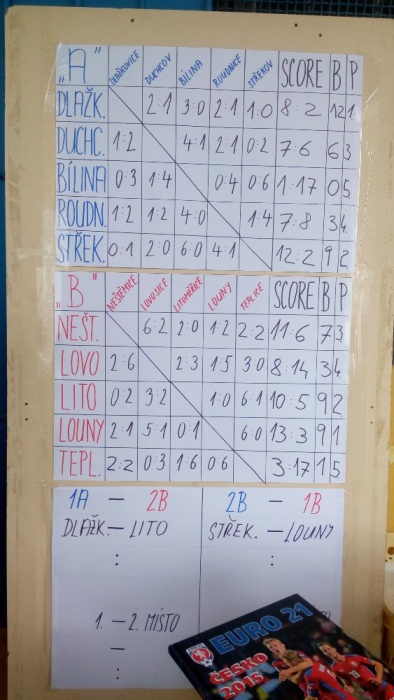 "A" DLAŽKOVICE DUCHCOV BÍLINA ROUDNICE STŘEKOV SCORE B P
DLAŽK. 2:1 3:0 2:1 1:0 8:2 12 1
DUCHC. 1:2 4:1 2:1 0:2 7:6 6 3
BÍLINA 0:3 1:4 0:4 0:6 1:17 0 5
ROUDN. 1:2 1:2 4:0 1:4 7:8 3 4
STŘEK. 0:1 2:0 6:0 4:1 12:2 9 2
"B" NEŠTĚMICE LOVOSICE LITOMĚŘICE LOUNY TEPLICE SCORE B P
NEŠT. 6:2 2:0 1:2 2:2 11:6 7 3
LOVO 2:6 2:3 1:5 3:0 8:14 3 4
LITO 0:2 3:2 1:0 6:1 10:5 9 2
LOUNY 2:1 5:1 0:1 6:0 13:3 9 1
TEPL. 2:2 0:3 1:6 0:6 3:17 1 5
1A — 2B
DLAŽK. — LITO
:
2B — 1B
STŘEK. — LOUNY
:
1. — 2. MÍSTO
—
:
EURO 21
ČESKO
2015